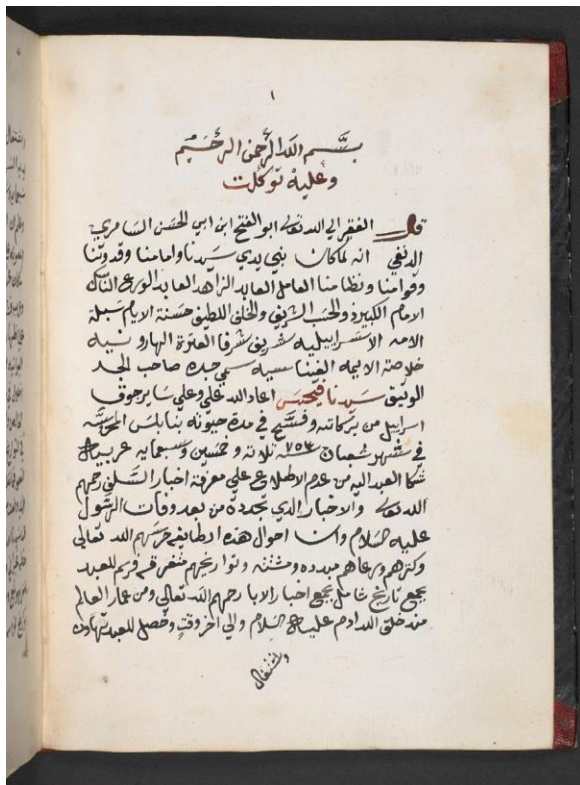 ١
بسم الله الرحمن الرحيم
وعليه توكلت
قال الفقير الي الله تعالى ابو الفتح ابن ابي الحسن السامري
الدنفي انه لما كان بني يدي سيدنا وامامنا وقدوتنا
وقوامنا ونظامنا العامل العابد الزاهد العابد الورع الناسك
الامام الكبير والحسب الشريف والخلق اللطيف حسنة الايام سبلة
الامه الاسراييليه شريف شرفا العترة الهارونيه
خلاصة الايمه الفينحاسيه سمي جده صاحب الجد
الوثيق سيدنا فينحس اعاد الله علي وعلي ساير جوق
اسراييل من بركاته وفسح في مدة حيوته بنابلس المحروسه
في شهر شعبان سنة ٧٥٣ ثلاثه وخمسين وسبمايه عربيه
شكا العبد اليه من عدم الاطلاع علي معرفة اخبار السلف رحمهم
الله تعالى والاخبار الذي تجددة من بعد وفات الرسول
عليه السلام وان احوال هذه الطايفه حرسهم الله تعالى
وكثرهم ورعاهم مبدده ومشتته وتواريخهم متفرقه فرسم للعبد
بجمع تاريخ شامل بجمع اخبار الابا رحمهم الله تعالى ومن عمار العالم
منذ خلق الله ادم عليه السلام والي اخر وقت وحصل للعبد تهاون
واشتغال